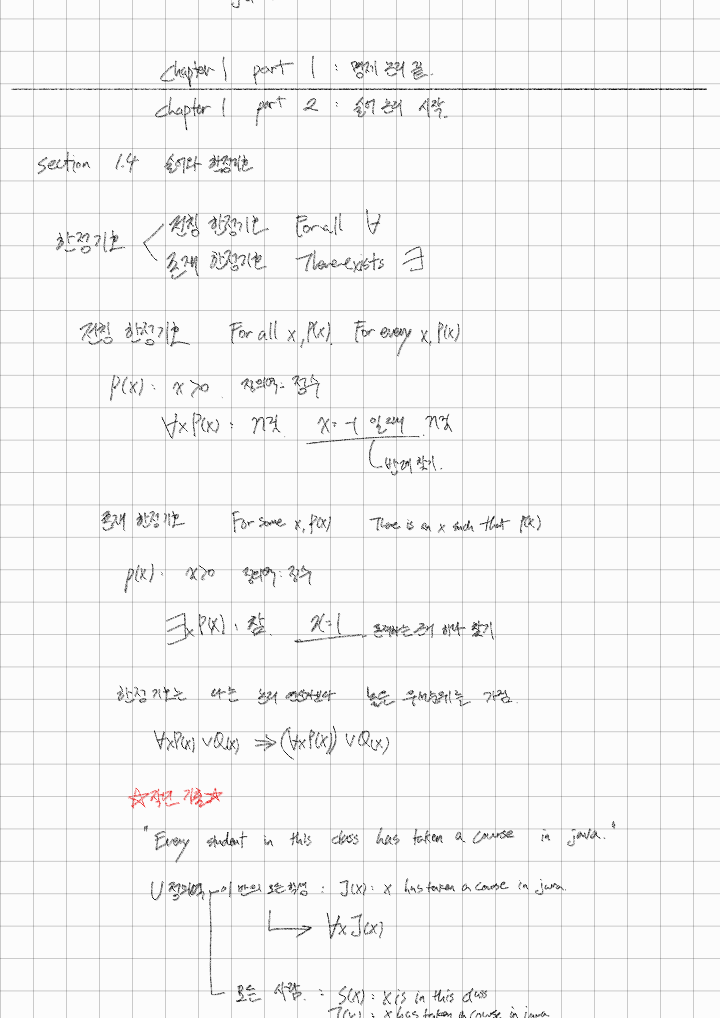 chapter 1 part 1 : 명제 논리 끝.
chapter 1 part 2 : 술어 논리 시작.
section 1.4 술어와 한정기호
한정기호
전칭 한정기호 For all ∀
존재 한정기호 There exists ∃
전칭 한정기호 For all x, P(x). For every x, P(x)
P(x) : x>0 정의역 : 정수
∀xP(x) : 거짓 x=-1 일 때 거짓
반례 찾기.
존재 한정기호 For some x, P(x) There is an x such that P(x)
P(x) : x>0 정의역 : 정수
∃xP(x) : 참. x=1 하나 찾기
한정기호는 다른 논리 연산자보다 높은 우선순위를 가짐.
∀xP(x) ∨Q(x) ⇒ (∀xP(x)) ∨Q(x)
☆작년 기출☆
"Every student in this class has taken a course in java."
U 정의역 이 반의 모든 학생 : J(x) : x has taken a course in java.
∀x J(x)
모든 사람. : S(x) : x is in this class
J(x) : x has taken a course in java